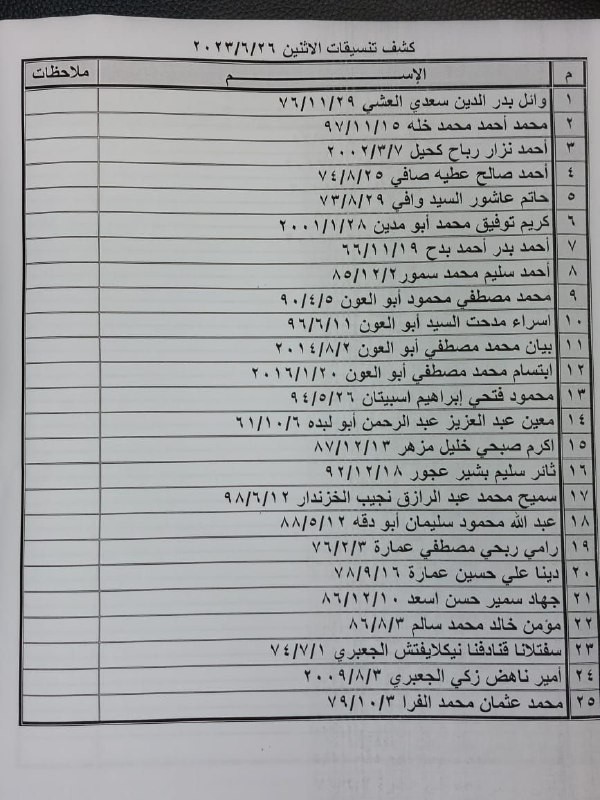 كشف تنسيقات الاثنين ٢٠٢٣/٦/٢٦
م الإســــــم ملاحظات
١ وائل بدر الدين سعدي العشي ٧٦/١١/٢٩
٢ محمد أحمد محمد خله ٩٧/١١/١٥
٣ أحمد نزار رباح كحيل ٢٠٠٢/٣/٧
٤ أحمد صالح عطيه صافي ٧٤/٨/٢٥
٥ حاتم عاشور السيد وافي ٧٣/٨/٢٩
٦ كريم توفيق محمد أبو مدين ٢٠٠١/١/٢٨
٧ أحمد بدر أحمد بدح ٦٦/١١/١٩
٨ أحمد سليم محمد سمور ٨٥/١٢/٢
٩ محمد مصطفي محمود أبو العون ٩٠/٤/٥
١٠ اسراء مدحت السيد أبو العون ٩٦/٦/١١
١١ بيان محمد مصطفي أبو العون ٢٠١٤/٨/٢
١٢ ابتسام محمد مصطفي أبو العون ٢٠١٦/١/٢٠
١٣ محمود فتحي إبراهيم اسبيتان ٩٤/٥/٢٦
١٤ معين عبد العزيز عبد الرحمن أبو لبده ٦١/١٠/٦
١٥ اكرم صبحي خليل مزهر ٨٧/١٢/١٣
١٦ ثائر سليم بشير عجور ٩٢/١٢/١٨
١٧ سميح محمد عبد الرازق نجيب الخزندار ٩٨/٦/١٢
١٨ عبد الله محمود سليمان أبو دقه ٨٨/٥/١٢
١٩ رامي ربحي مصطفي عمارة ٧٦/٢/٣
٢٠ دينا علي حسين عمارة ٧٨/٩/١٦
٢١ جهاد سمير حسن اسعد ٨٦/١٢/١٠
٢٢ مؤمن خالد محمد سالم ٨٦/٨/٣
٢٣ سفتلانا قنادفنا نيكلايفتش الجعبري ٧٤/٧/١
٢٤ أمير ناهض زكي الجعبري ٢٠٠٩/٨/٣
٢٥ محمد عثمان محمد الفرا ٧٩/١٠/٣